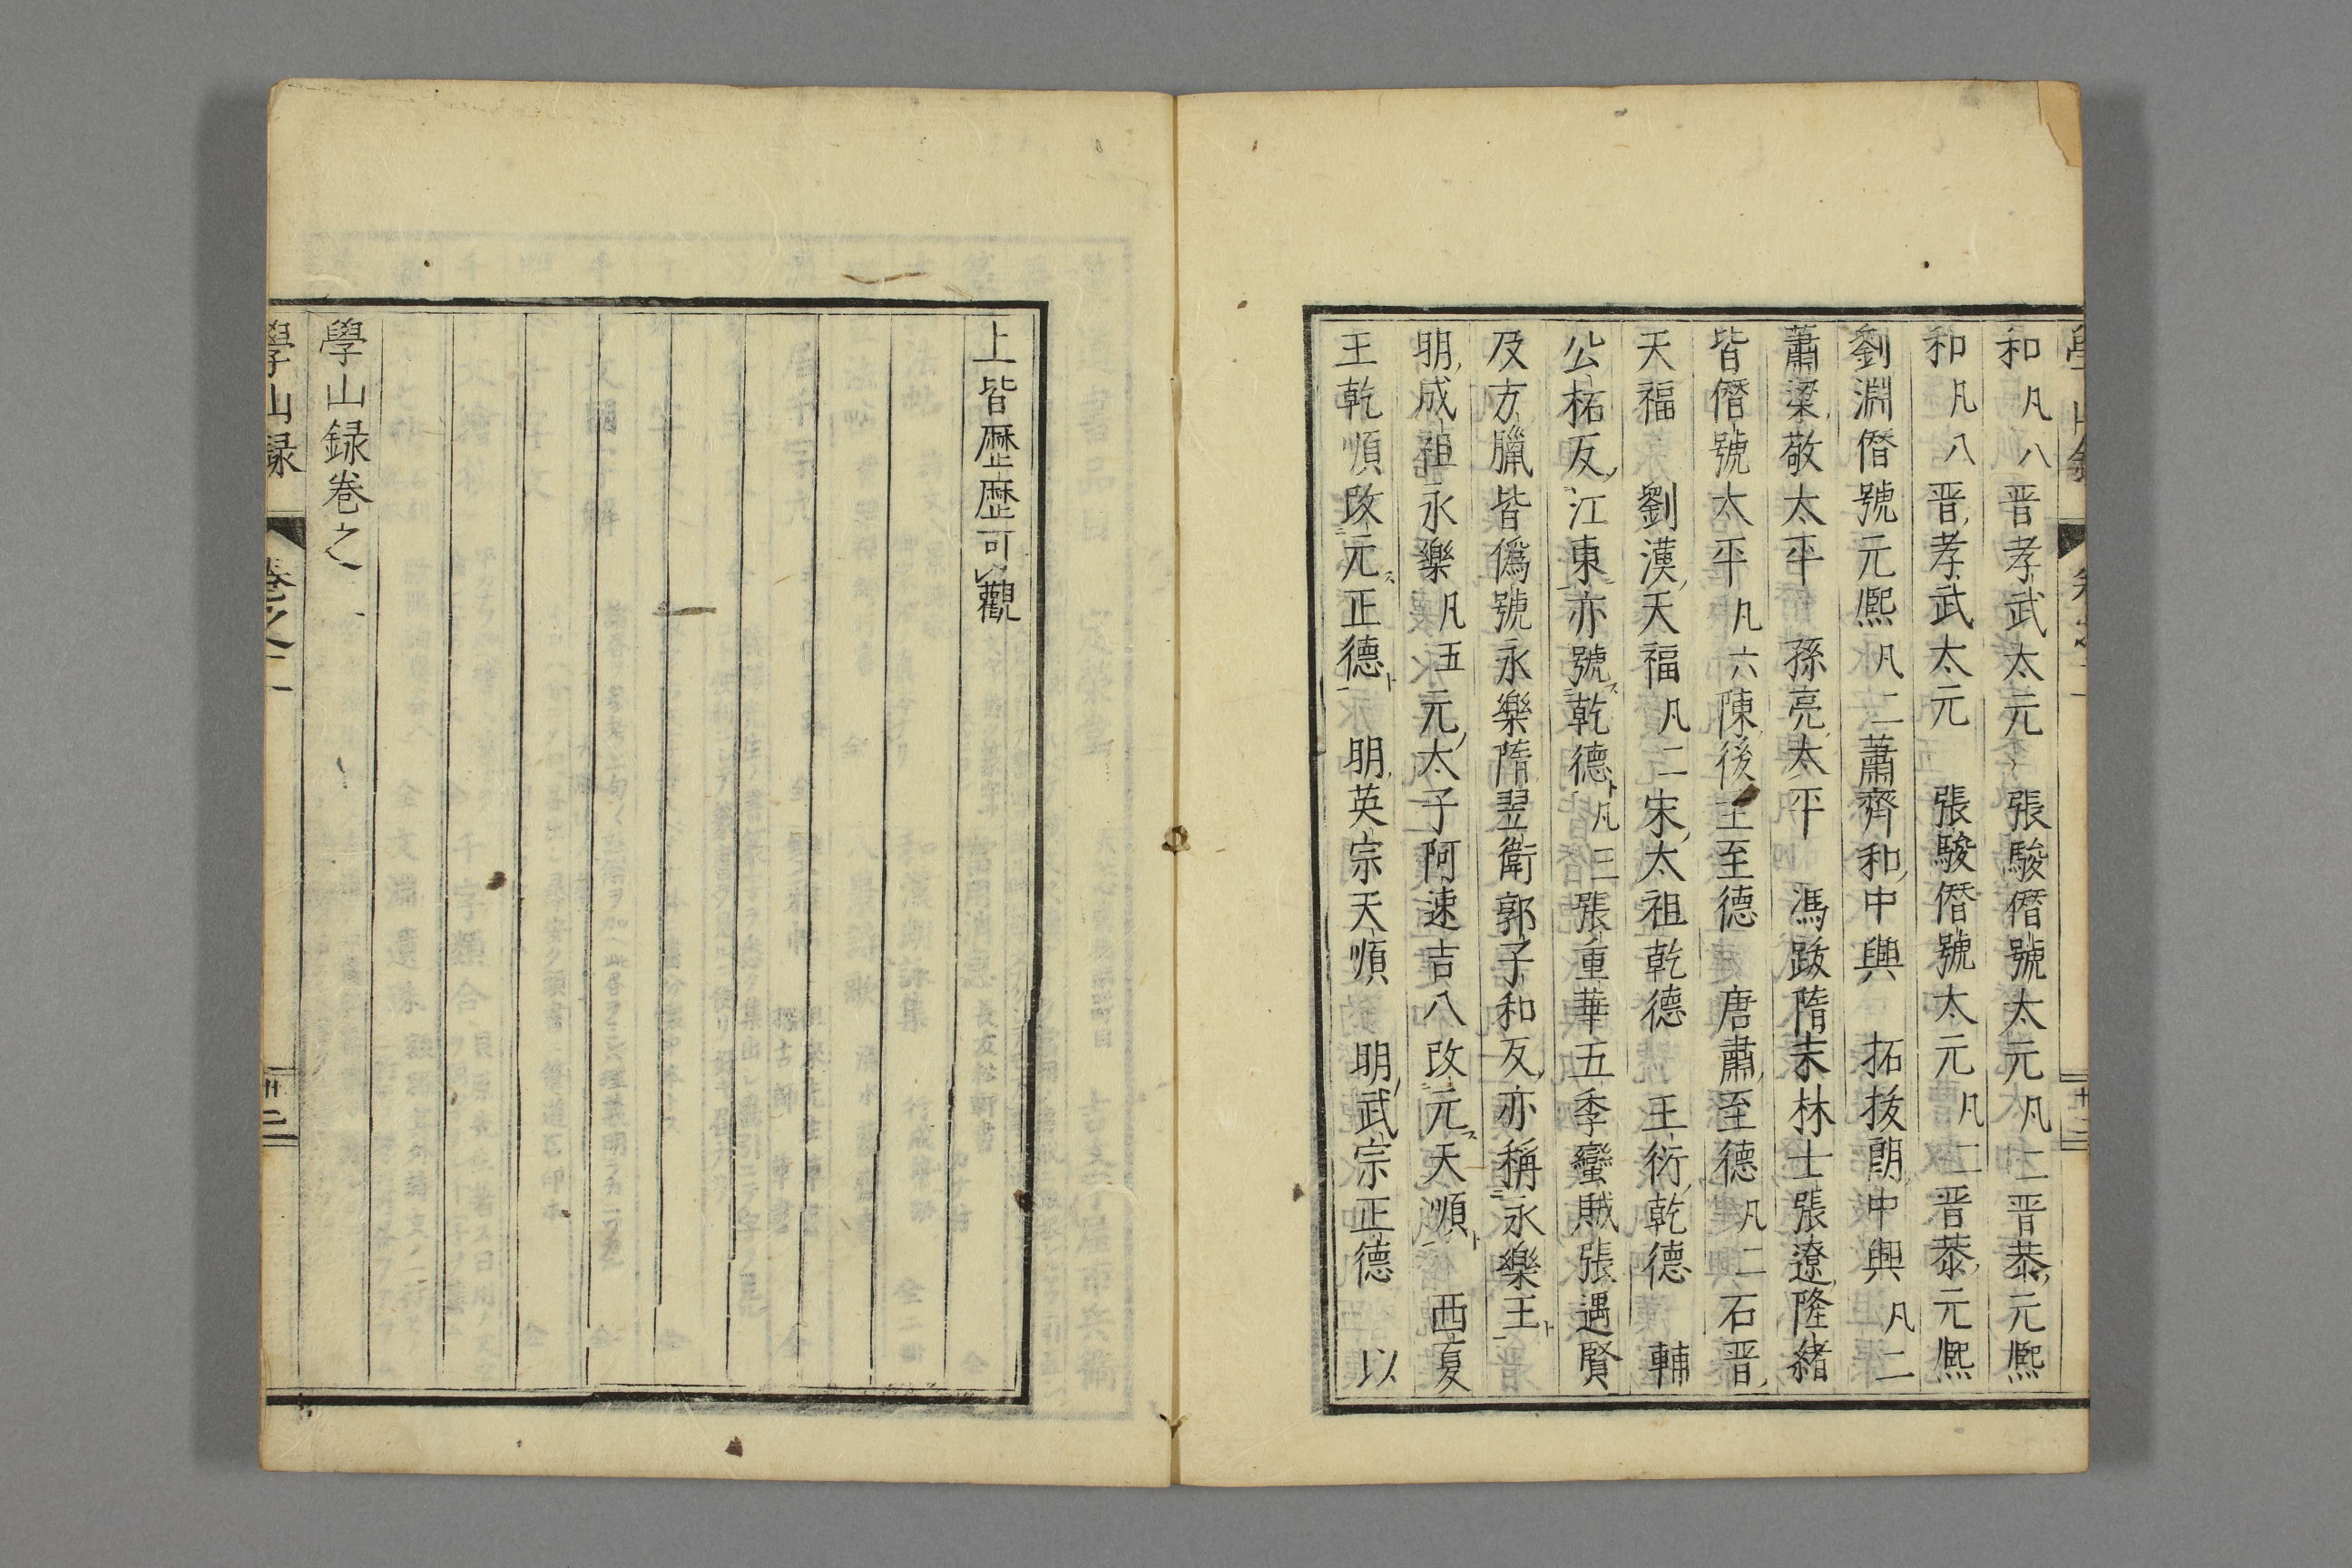 和凡八晋孝武太元 張駿僭號太元凡二晋恭元熙
和凡八晋孝武太元 張駿僭號太元凡二晋恭元熙
劉淵僭號元熙凡二蕭齊和中興 拓拔朗中興凡二
蕭梁敬太平 孫亮太平 馮跋隋末林士張遼隆緒
皆僭號太平凡六陳後主至德 唐肅至德凡二石晋
天福 劉漢天福凡二宋太祖乾德 王衍乾德 輔
公柘反江東亦號乾德凡三張重華五季蠻賊張遇賢
及方臘皆僞號永樂隋翌衛郭子和反亦稱永樂王
明成祖永樂凡五元太子阿速吉八改元天順 西夏
王乾順改元正德 明英宗天順 明武宗正德 以
上皆歷歷可觀
學山録卷之一
學山録 卷之一 廿二